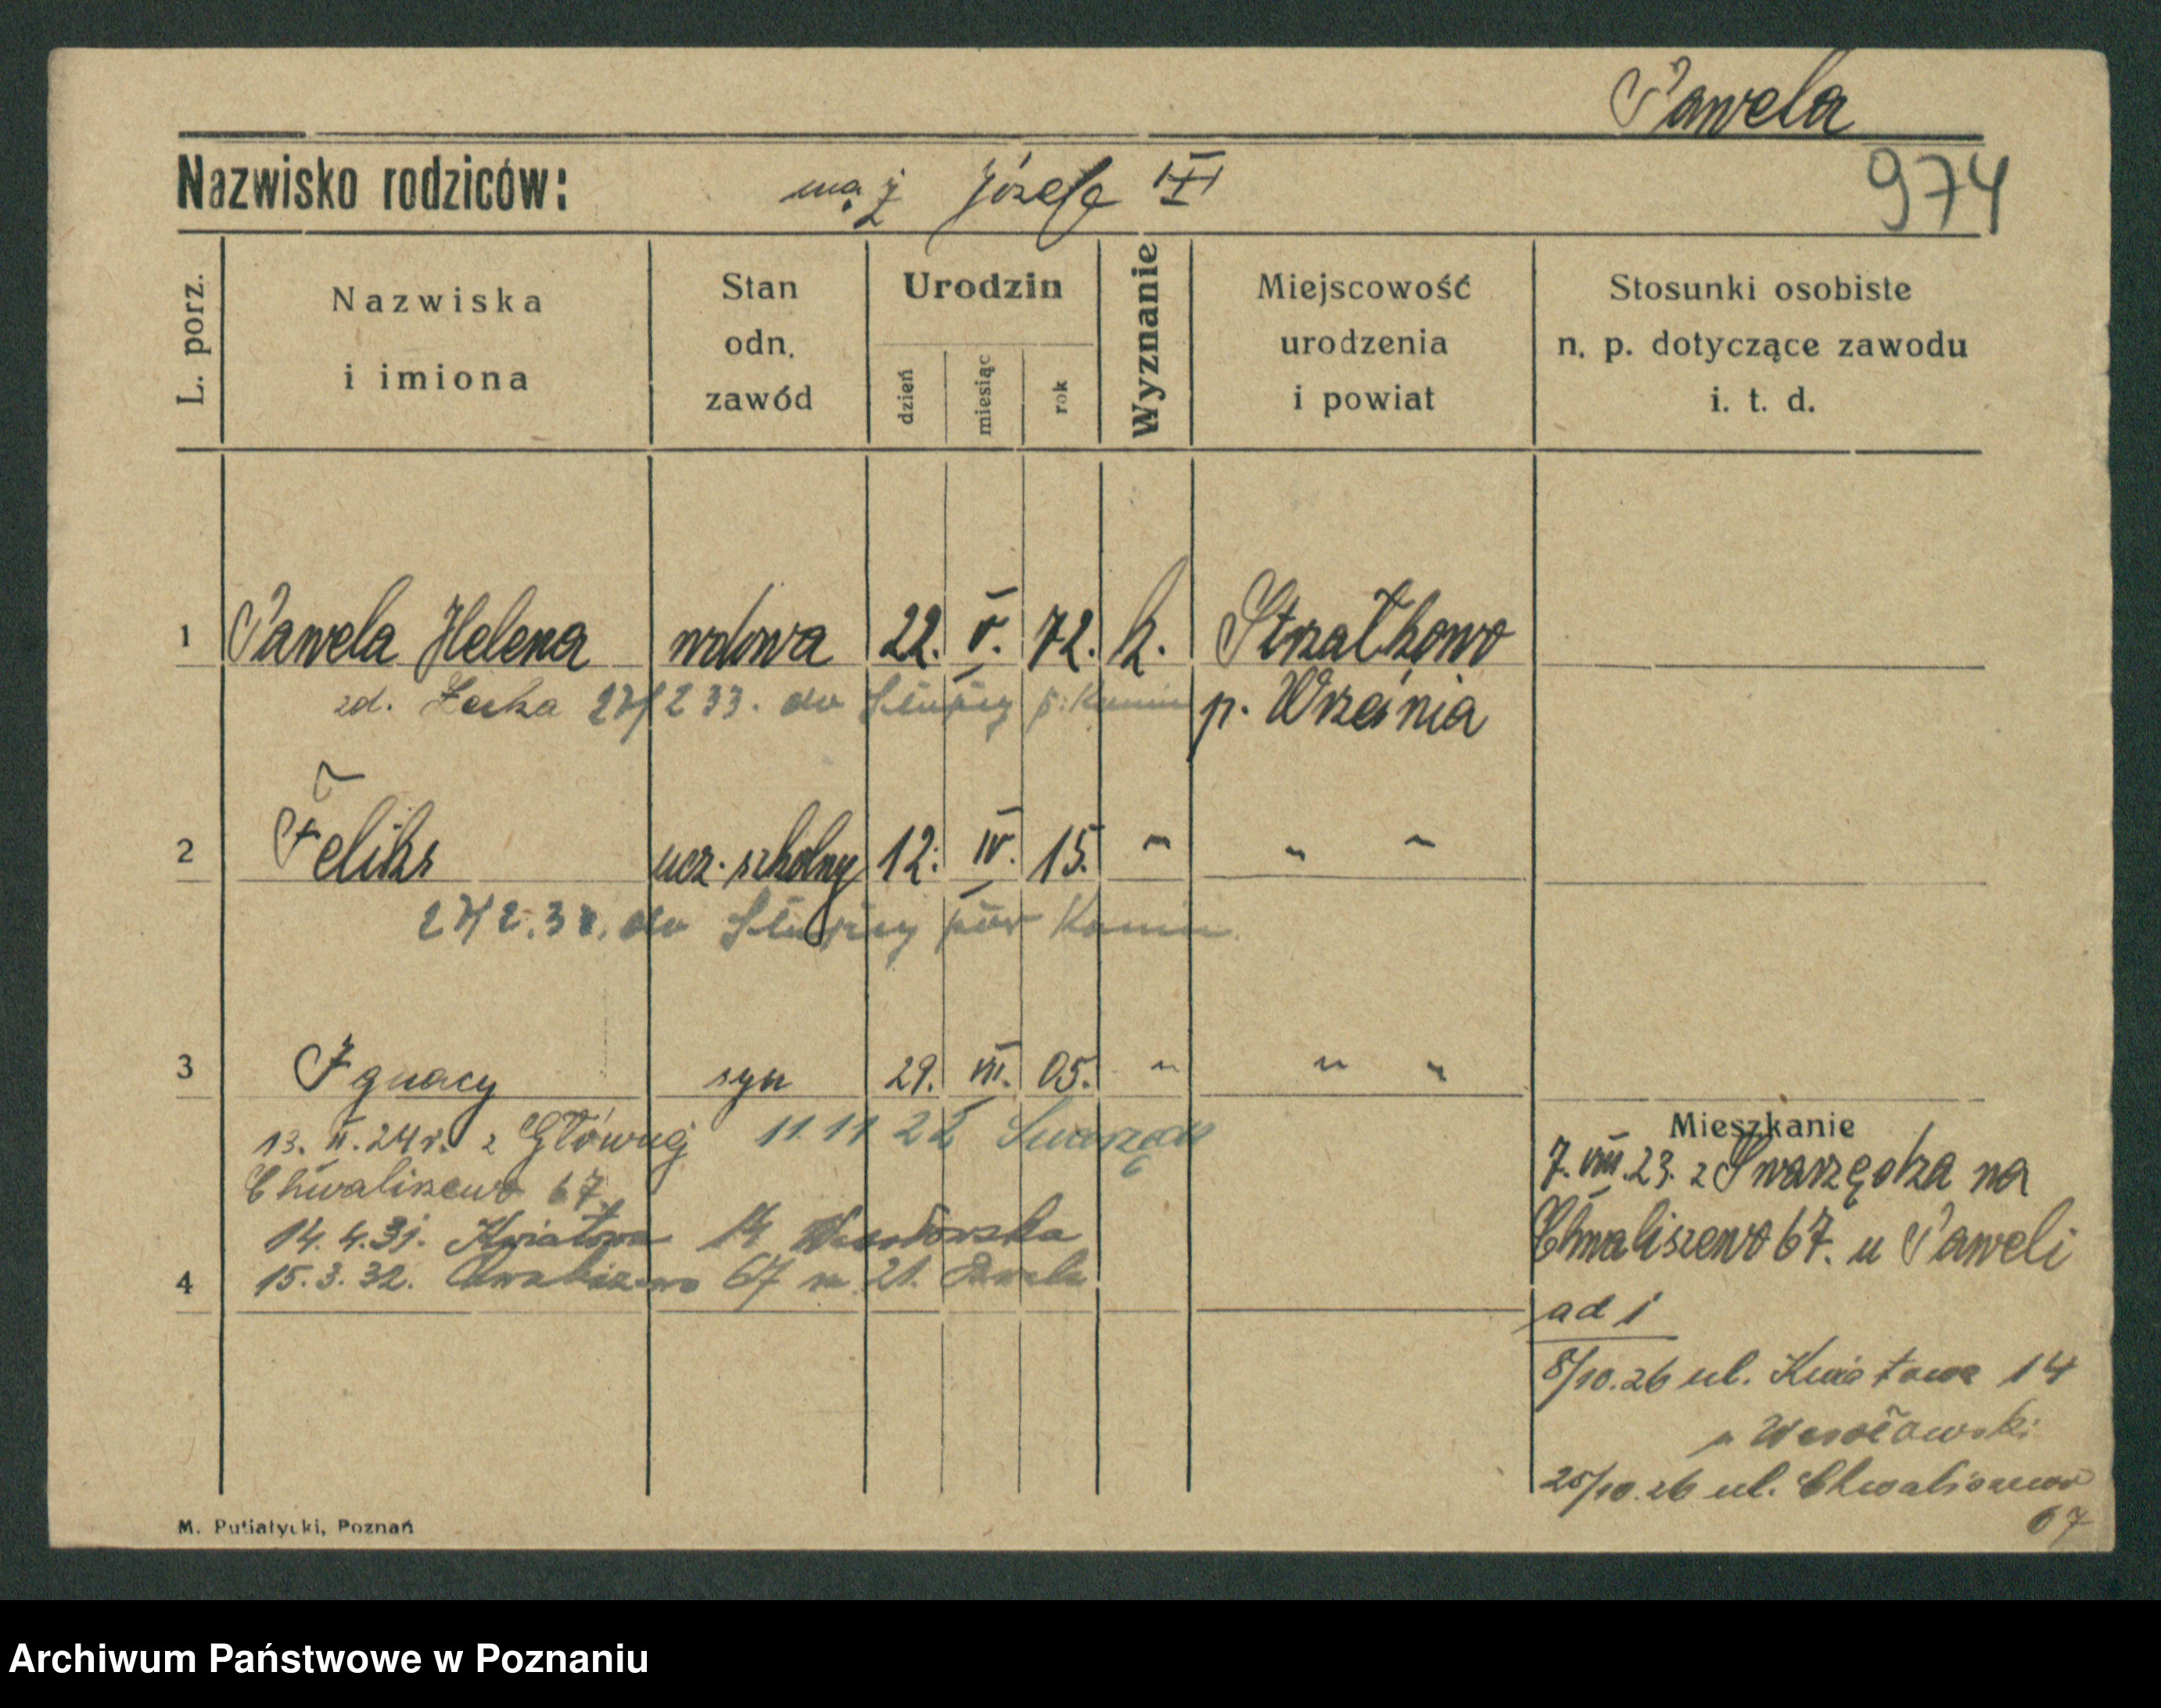 Pawela
974
Nazwisko rodziców: mąż Józefa
L. porz.
Nazwiska
i imiona
Stan
odn.
zawód
Urodzin
dzień
miesiąc
rok
Wyznanie
Miejscowość
urodzenia
i powiat
Stosunki osobiste
n. p. dotyczące zawodu
i. t. d.
1 Pawela Helena wdowa 22. V. 72. k. Strzałkowo
zd. 27/2 33. do Słupcy p. Konin p. Września
2 Feliks ucz. szkolny 12. IV. 15. " " "
27/2. 33. do Słupcy pow Konin.
3 Ignacy syn 29. VII. 05. " " "
13. II. 24 r. z Głównej 11.11 22 Swarzędz
Chwaliszewo 67
14. 4. 31. Kwiatowa 14 Wesołowska
4 15. 3. 32. Chwaliszewo 67 m. 21. Pawela
Mieszkanie
7. VIII. 23. z Swarzędza na
Chwaliszewo 67. u Paweli
ad 1
8/10. 26 ul. Kwiatowa 14
u Wesołowski
25/10. 26 ul. Chwaliszewo
67
M. Putiatycki, Poznań
Archiwum Państwowe w Poznaniu